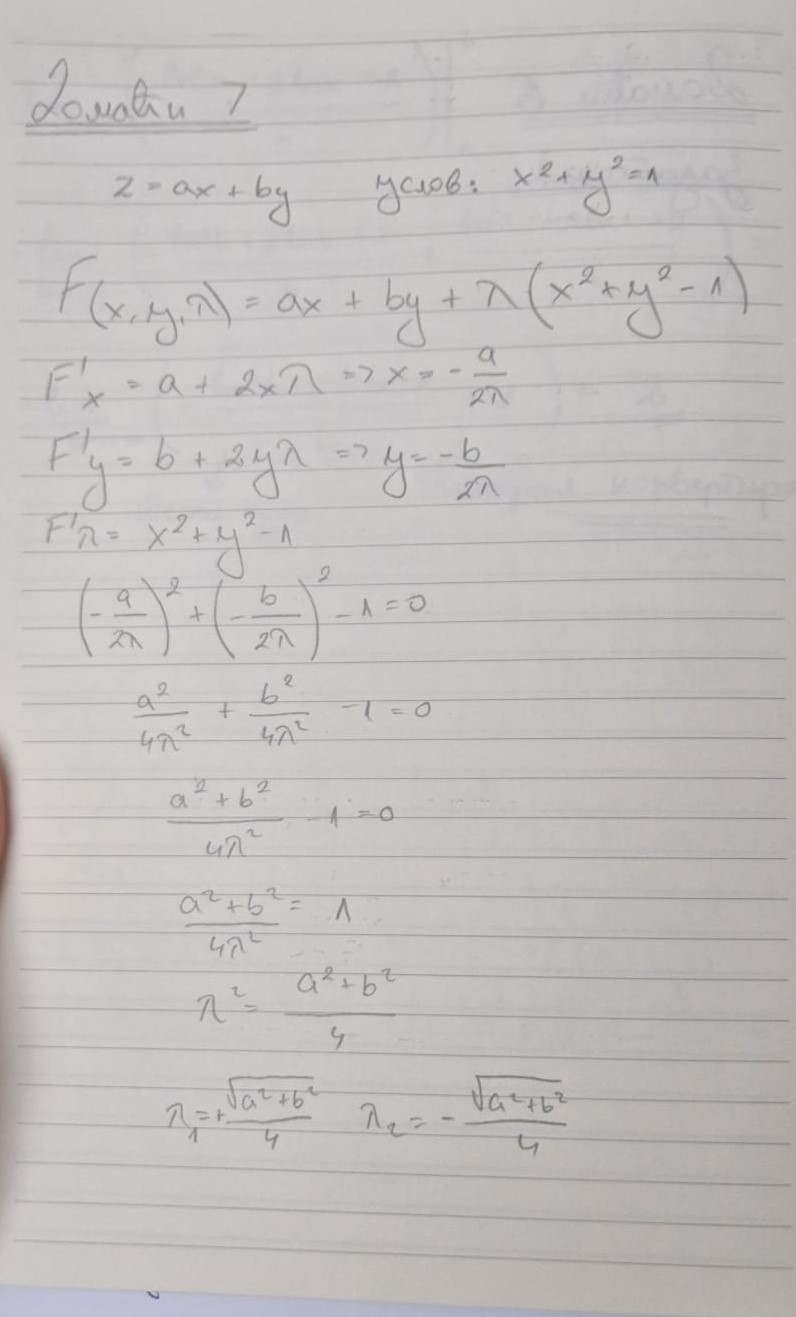 Домаћи 7
z = ax + by услов: x² + y² = 1
F(x, y, λ) = ax + by + λ(x² + y² - 1)
F'x = a + 2xλ => x = - a/2λ
F'y = b + 2yλ => y = - b/2λ
F'λ = x² + y² - 1
(- a/2λ)² + (- b/2λ)² - 1 = 0
a²/4λ² + b²/4λ² - 1 = 0
(a² + b²)/4λ² - 1 = 0
(a² + b²)/4λ² = 1
λ² = (a² + b²)/4
λ₁ = + √(a² + b²)/4 λ₂ = - √(a² + b²)/4